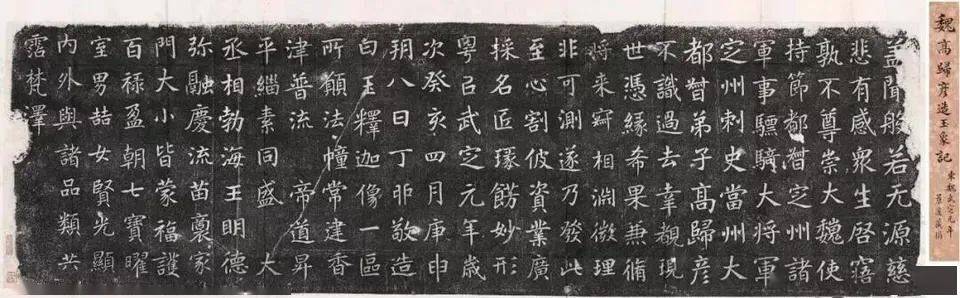 魏高歸彥造玉象記
東魏武定元年
盖聞般若元源慈
悲有感衆生啓寤
孰不尊崇大魏使
持節都督定州諸
軍事驃騎大將軍
定州刺史當州大
都督弟子高歸彥
不識過去幸覩現
世憑緣希果兼脩
將来冥相淵微理
非可測遂乃發此
至心割彼資業廣
採名匠瑑餝妙形
粤以武定元年歲
次癸亥四月庚申
朔八日丁卯敬造
白玉釋迦像一區
所願法幢常建香
津普流 帝道昇
平緇素同盛 大
丞相勃海王明德
弥融慶流苗裔家
門大小皆蒙福護
百禄盈朝七寶曜
室男喆女賢光顯
内外與諸品類共
霑梵澤